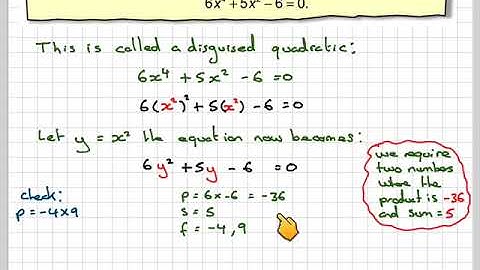 6x⁴ + 5x² − 6 = 0.
This is called a disguised quadratic:
6x⁴ + 5x² − 6 = 0
6(x²)² + 5(x²) − 6 = 0
Let y = x² the equation now becomes:
6y² + 5y − 6 = 0
we require
two numbers
where the
product is -36
and sum = 5
check:
p = -4x9
p = 6x-6 = -36
s = 5
f = -4, 9